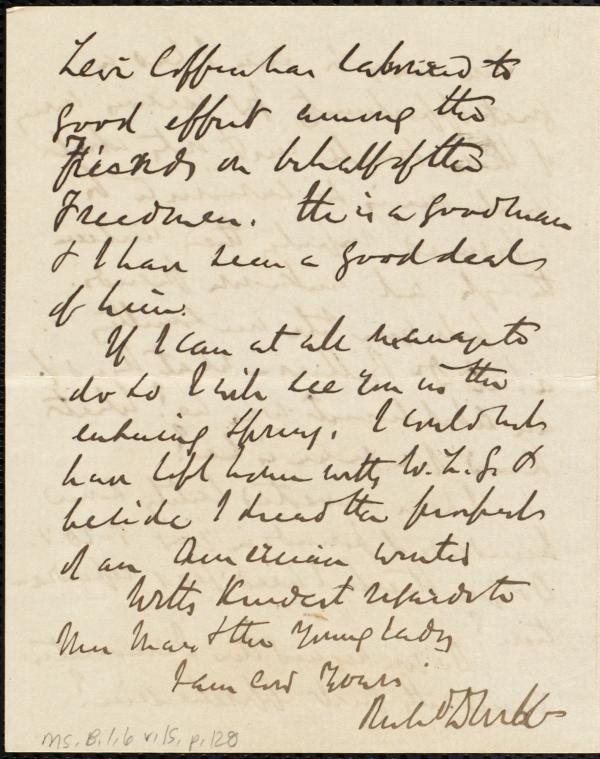 Levi Coffin has laboured to
good effect among the
Friends on behalf of the
Freedmen. He is a good man
& I have seen a good deal
of him.
If I can at all manage to
do so I will see you in the
ensuing Spring. I could not
have left home with W. L. G. &
beside I dread the prospect
of an American winter
With kindest regards to
Mrs May & the Young Lady
I am Cord Yours
Rich D Webb
Ms. B. 1. 6 v. 15, p. 128